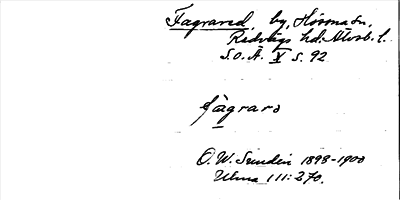 Fagrared, by, Hössna sn,
Redvägs hd. Älvsb. l.
S.O.Ä. X s. 92
fàgrara
O. W. Sundén 1898-1900
Ulma 111:270.